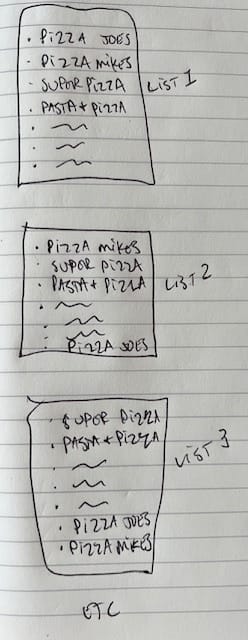 • PIZZA JOES
• PIZZA MIKES
• SUPOR PIZZA
• PASTA + PIZZA
LIST 1
• PIZZA MIKES
• SUPOR PIZZA
• PASTA + PIZZA
PIZZA JOES
LIST 2
• SUPOR PIZZA
• PASTA + PIZZA
• PIZZA JOES
• PIZZA MIKES
LIST 3
ETC